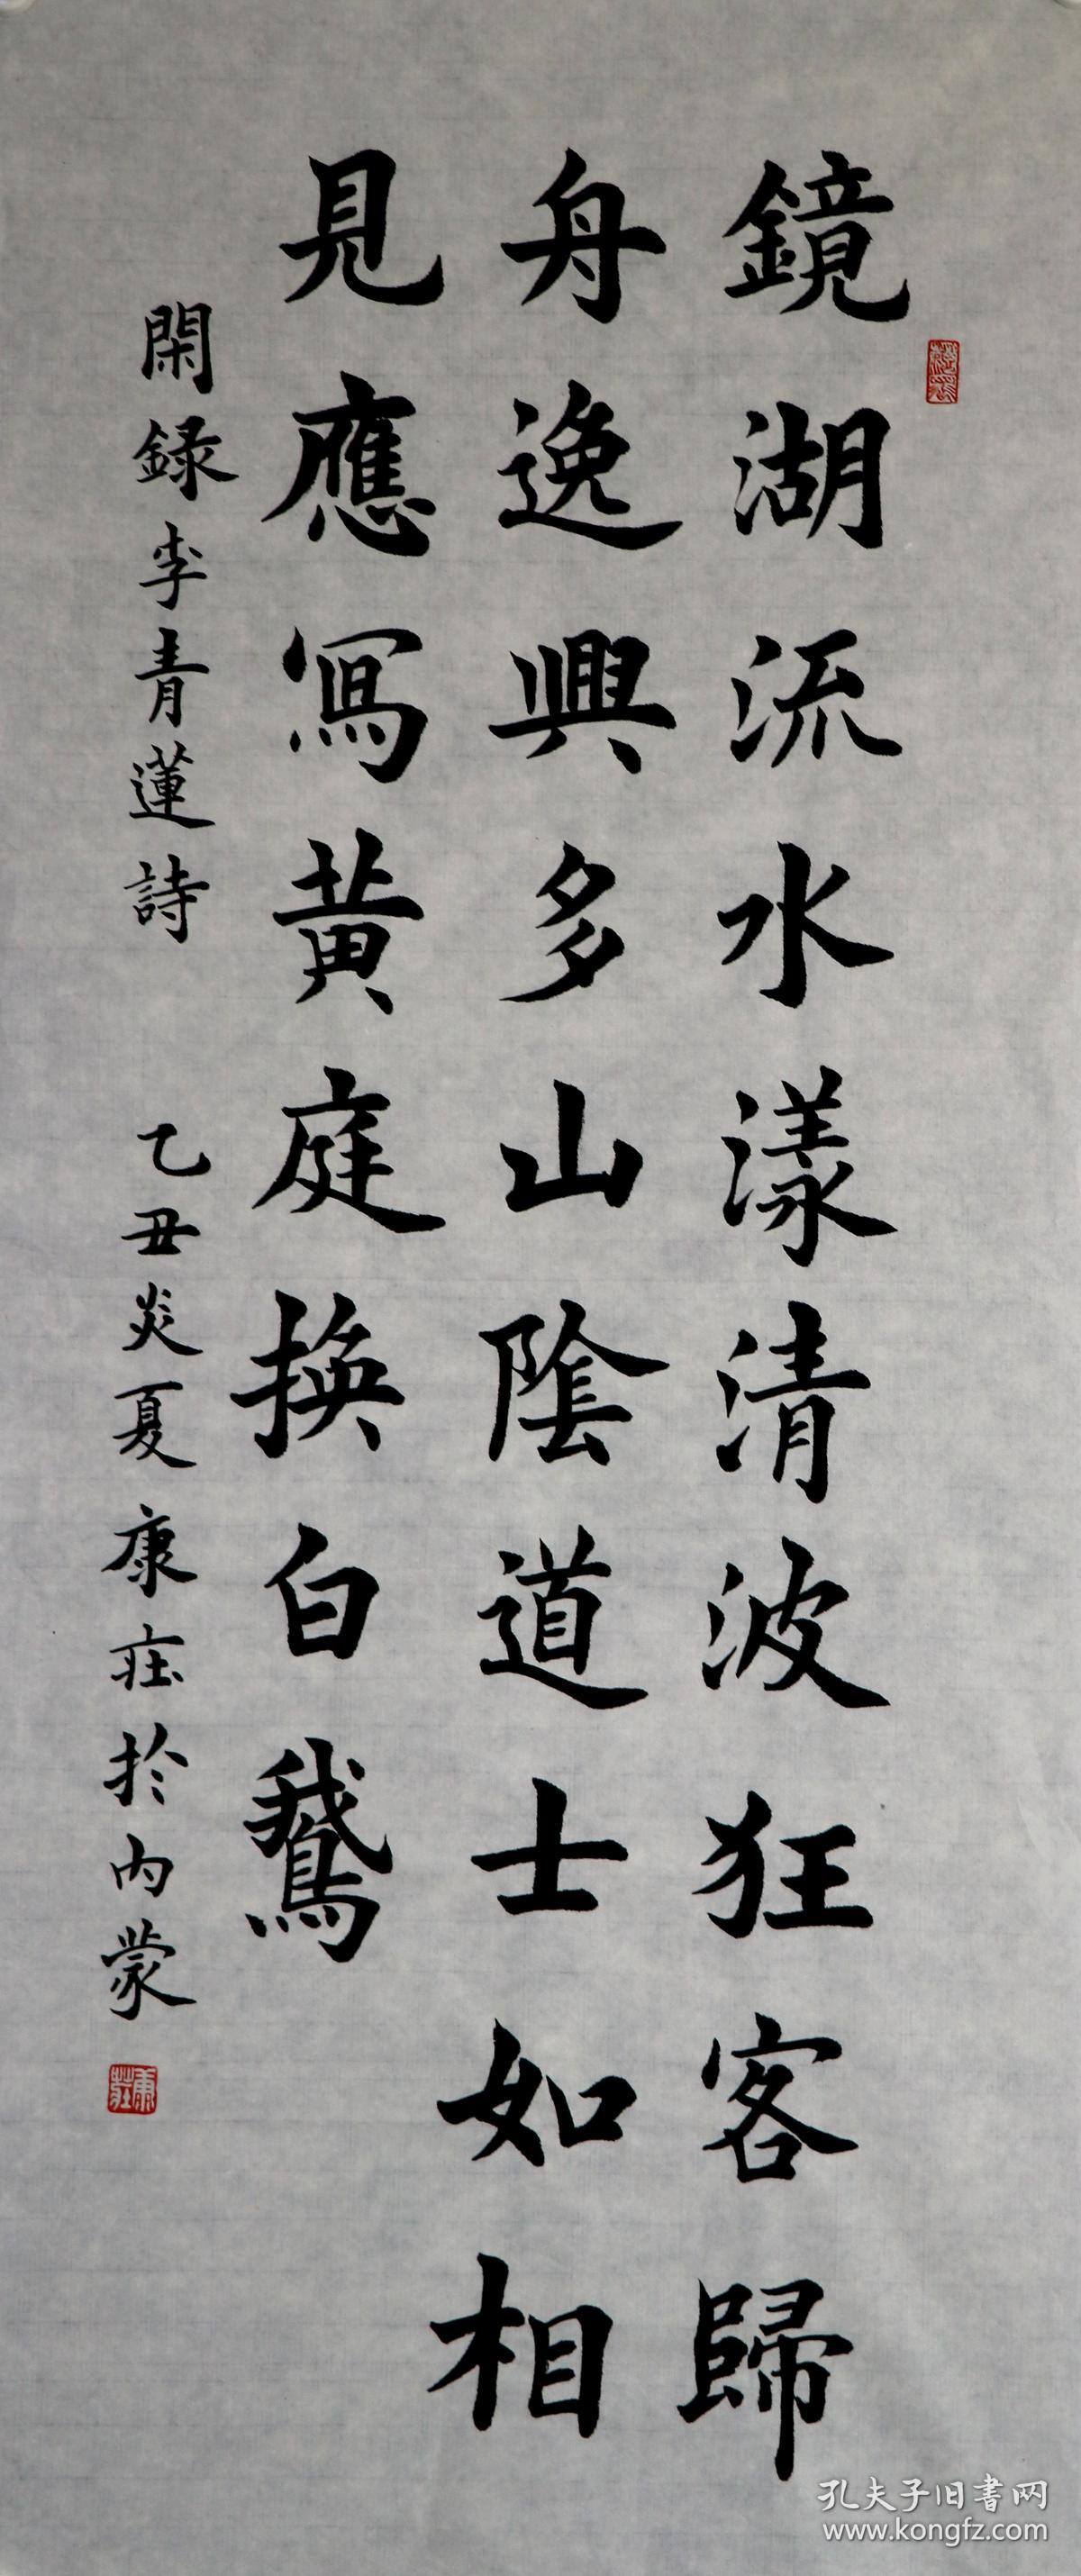 鏡湖流水漾清波狂客歸
舟逸興多山陰道士如相
見應寫黄庭換白鵝
閑録李青蓮詩 乙丑炎夏康庄於内蒙
康莊
孔夫子旧书网
www.kongfz.com